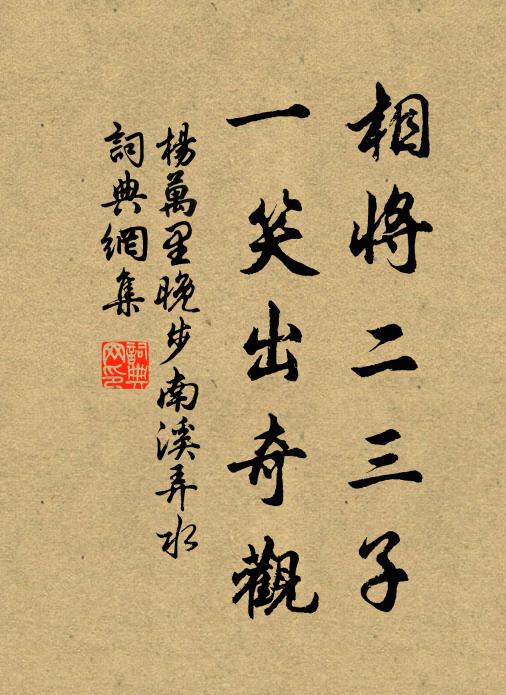 相將二三子
一笑出奇觀
楊萬里晚步南溪弄水
詞典網集
詞典网印